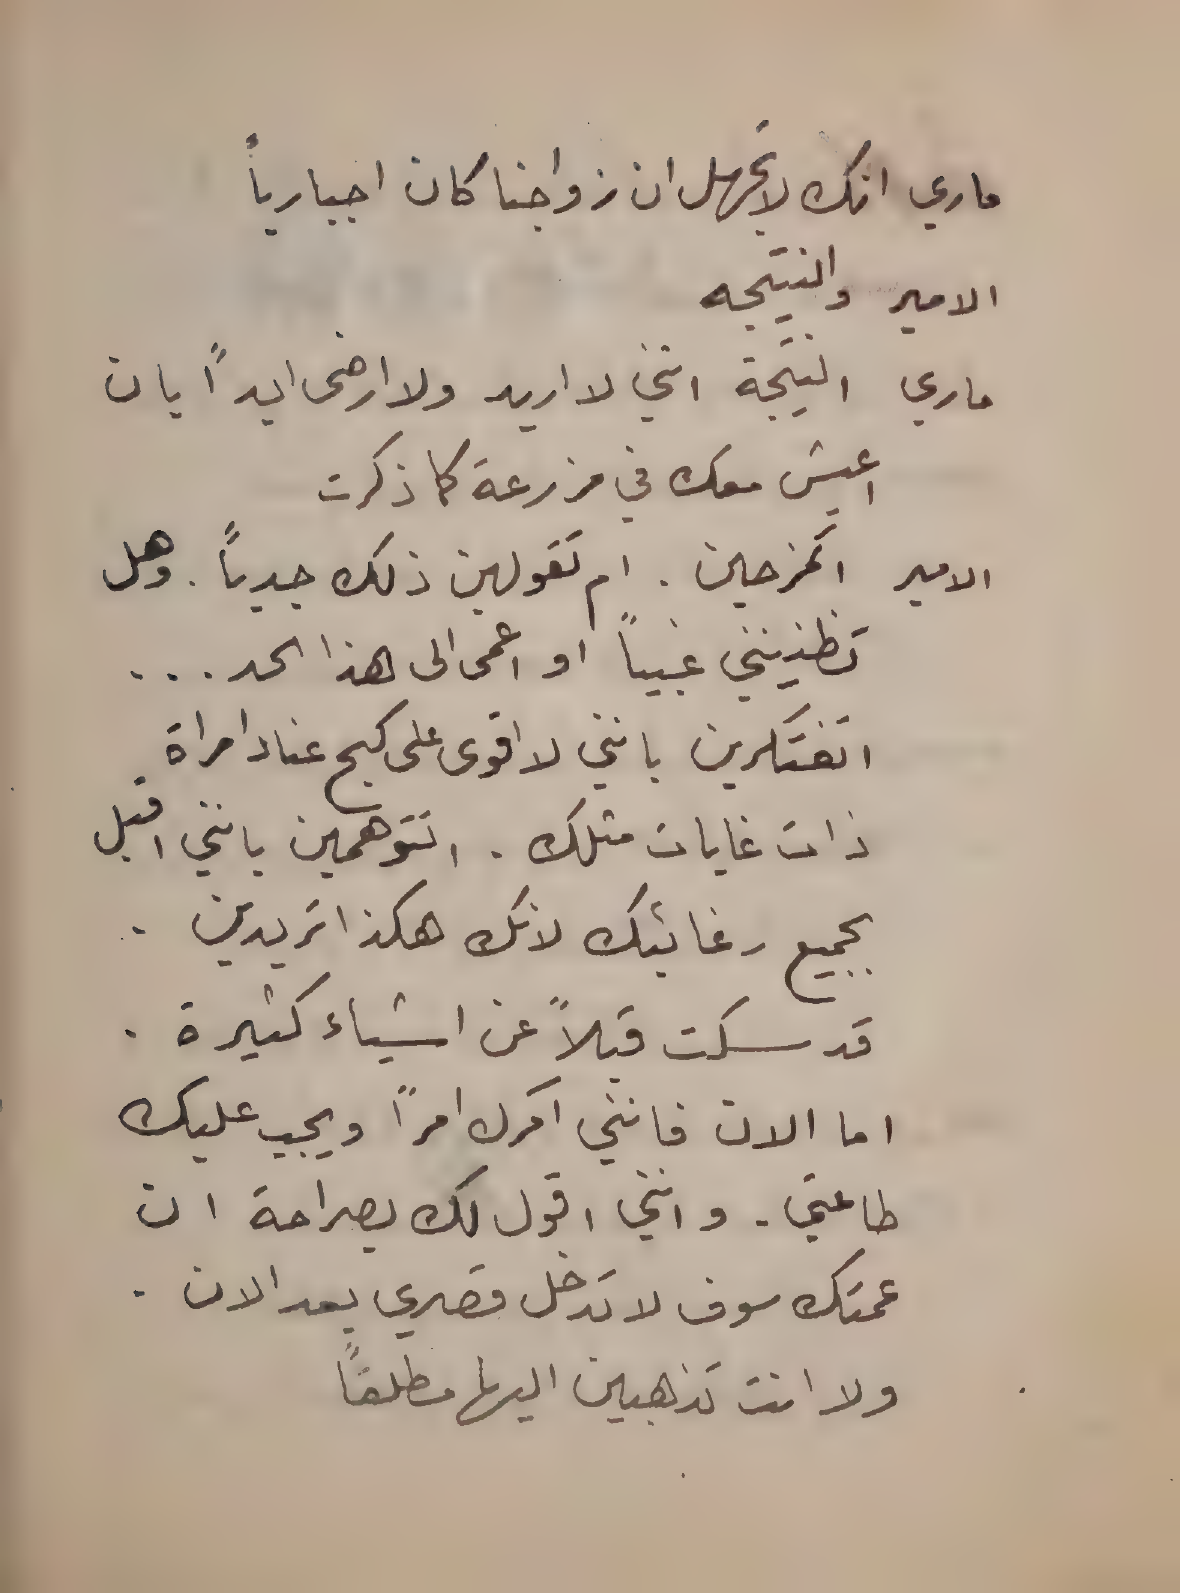 ماري انك لا تجهل ان زواجنا كان اجبارياً
الامير والنتيجه
ماري النتيجة انني لا اريد ولا ارضى ابداً بان
اعيش معك في مزرعة كما ذكرت
الامير اتمزحين . ام تقولين ذلك جدياً . وهل
تظنينني غبياً او اعمى الى هذا الحد ...
اتفتكرين بانني لا اقوى على كبح عناد امراة
ذات غايات مثلك . اتتوهمين بانني اقبل
بجميع رغائبك لانك هكذا تريدين .
قد سكت قبلاً عن اشياء كثيرة .
اما الان فانني امرك امراً ويجب عليك
طاعتي . وانني اقول لك بصراحة ان
عمتك سوف لا تدخل قصري بعد الان .
ولا انت تذهبين اليها مطلقاً